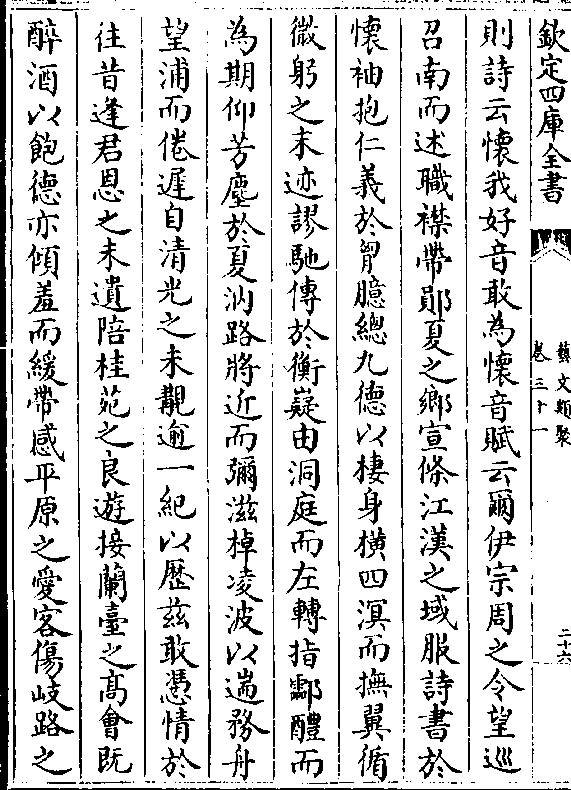 欽定四庫全書
藝文類聚
卷三十一
二十六
則詩云懷我好音敢為懷音賦云爾伊宗周之令望巡
召南而述職襟帶鄖夏之鄉宣條江漢之域服詩書於
懷袖抱仁義於胷臆總九德以棲身橫四溟而撫翼循
微躬之末迹謬馳傳於衡嶷由洞庭而左轉指酃醴而
為期仰芳塵於夏汭路將近而彌滋棹凌波以遄務舟
望浦而倦遲自清光之未覯逾一紀以歷茲敢憑情於
往昔逢君恩之未遺陪桂苑之良遊接蘭臺之高會既
醉酒以飽德亦傾羞而緩帶感平原之愛客傷岐路之